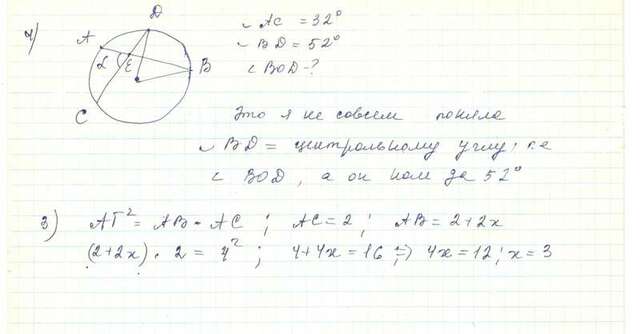 4)
D
A
∠
E
B
C
◡ AC = 32°
◡ BD = 52°
∠ BOD - ?
Это я не совсем поняла
◡ BD = центральному углу, т.е
∠ BOD, а он нам дан 52°
3) AT² = AB · AC ; AC = 2 ; AB = 2 + 2x
(2+2x) · 2 = 4² ; 4+4x = 16 ⇒ 4x = 12 ; x = 3